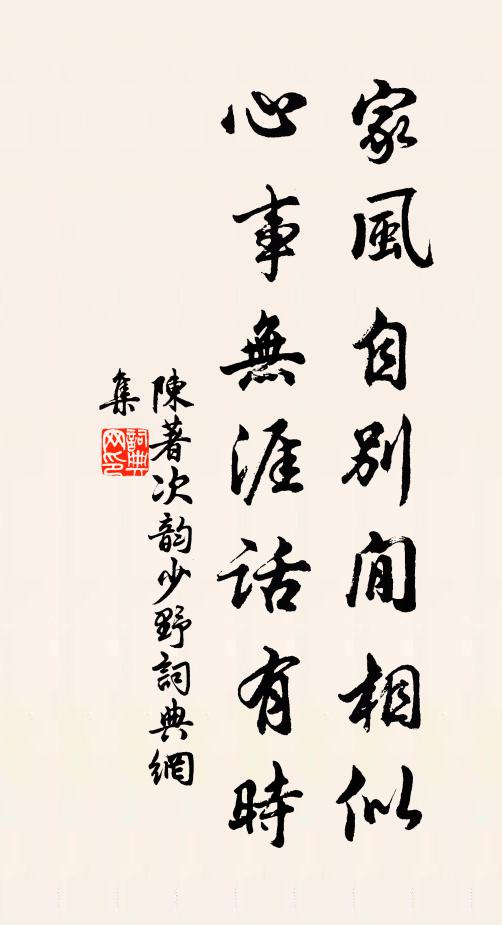 家風自別閒相似
心事無涯話有時
陳著次韵少野詞典網
集
詞典網印